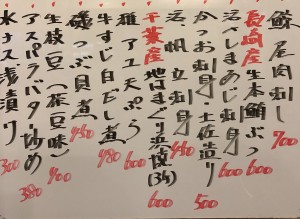 鮫尾肉刺し 700
長崎産 生本鮪ぶつ 600
活〆しまあじ刺身 600
かつお刺身・土佐造り 500
活帆立刺身 450
千葉産 地はまぐり浜焼(3ヶ) 600
稚アユ天ぷら 600
牛すじ白だし煮 480
磯つぶ貝煮 450
生枝豆(茶豆味) 400
アスパラバター炒め 380
水ナス浅漬け 300